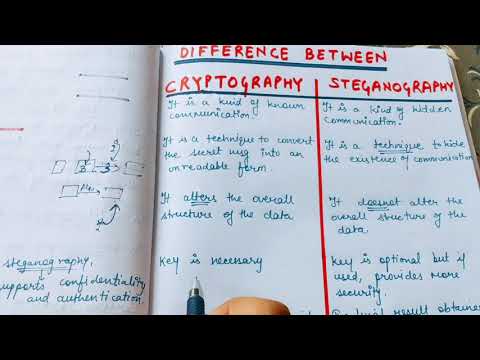 DIFFERENCE BETWEEN
CRYPTOGRAPHY
It is a kind of known
communication.
It is a technique to convert
the secret msg into an
unreadable form.
It alters the overall
structure of the data
Key is necessary
STEGANOGRAPHY
It is a kind of hidden
communication.
It is a technique to hide
the existence of communication
It doesnot alter the
overall structure of the
data.
Key is optional but if
used, provides more
security.
result obtained
steganography.
supports confidentiality
and authentication.